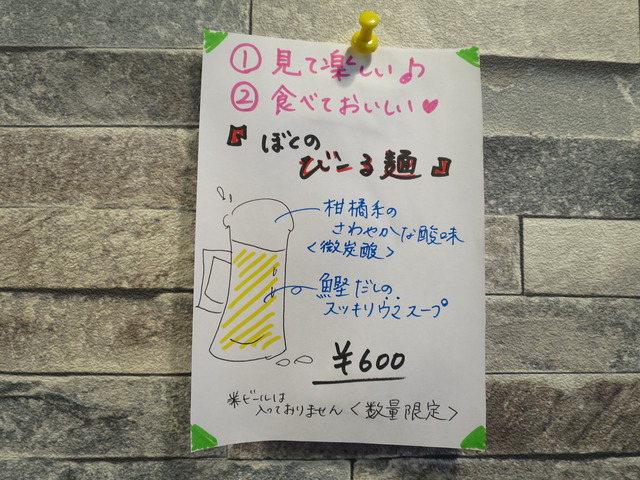 ① 見て楽しい♪
② 食べておいしい♥
『ぼとの
びーる麺』
柑橘系の
さわやかな酸味
<微炭酸>
鰹だしの
スッキリウマスープ
¥600
※ビールは
入っておりません <数量限定>